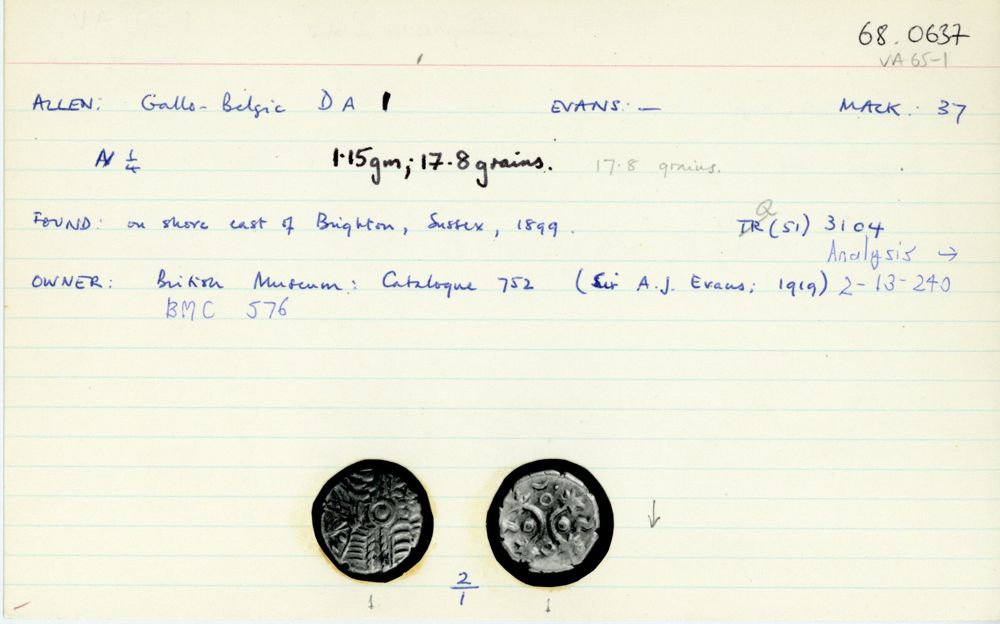 68.0637
VA 65-1
ALLEN: Gallo-Belgic D A 1 EVANS: — MACK: 37
N 1/4 1.15gm; 17.8 grains. 17.8 grains.
FOUND: on shore east of Brighton, Sussex, 1899. Q (SI) 3104
Analysis →
OWNER: British Museum: Catalogue 752 (Sir A.J. Evans; 1919) 2-13-240
BMC 576
↓
2/1
↓ ↓